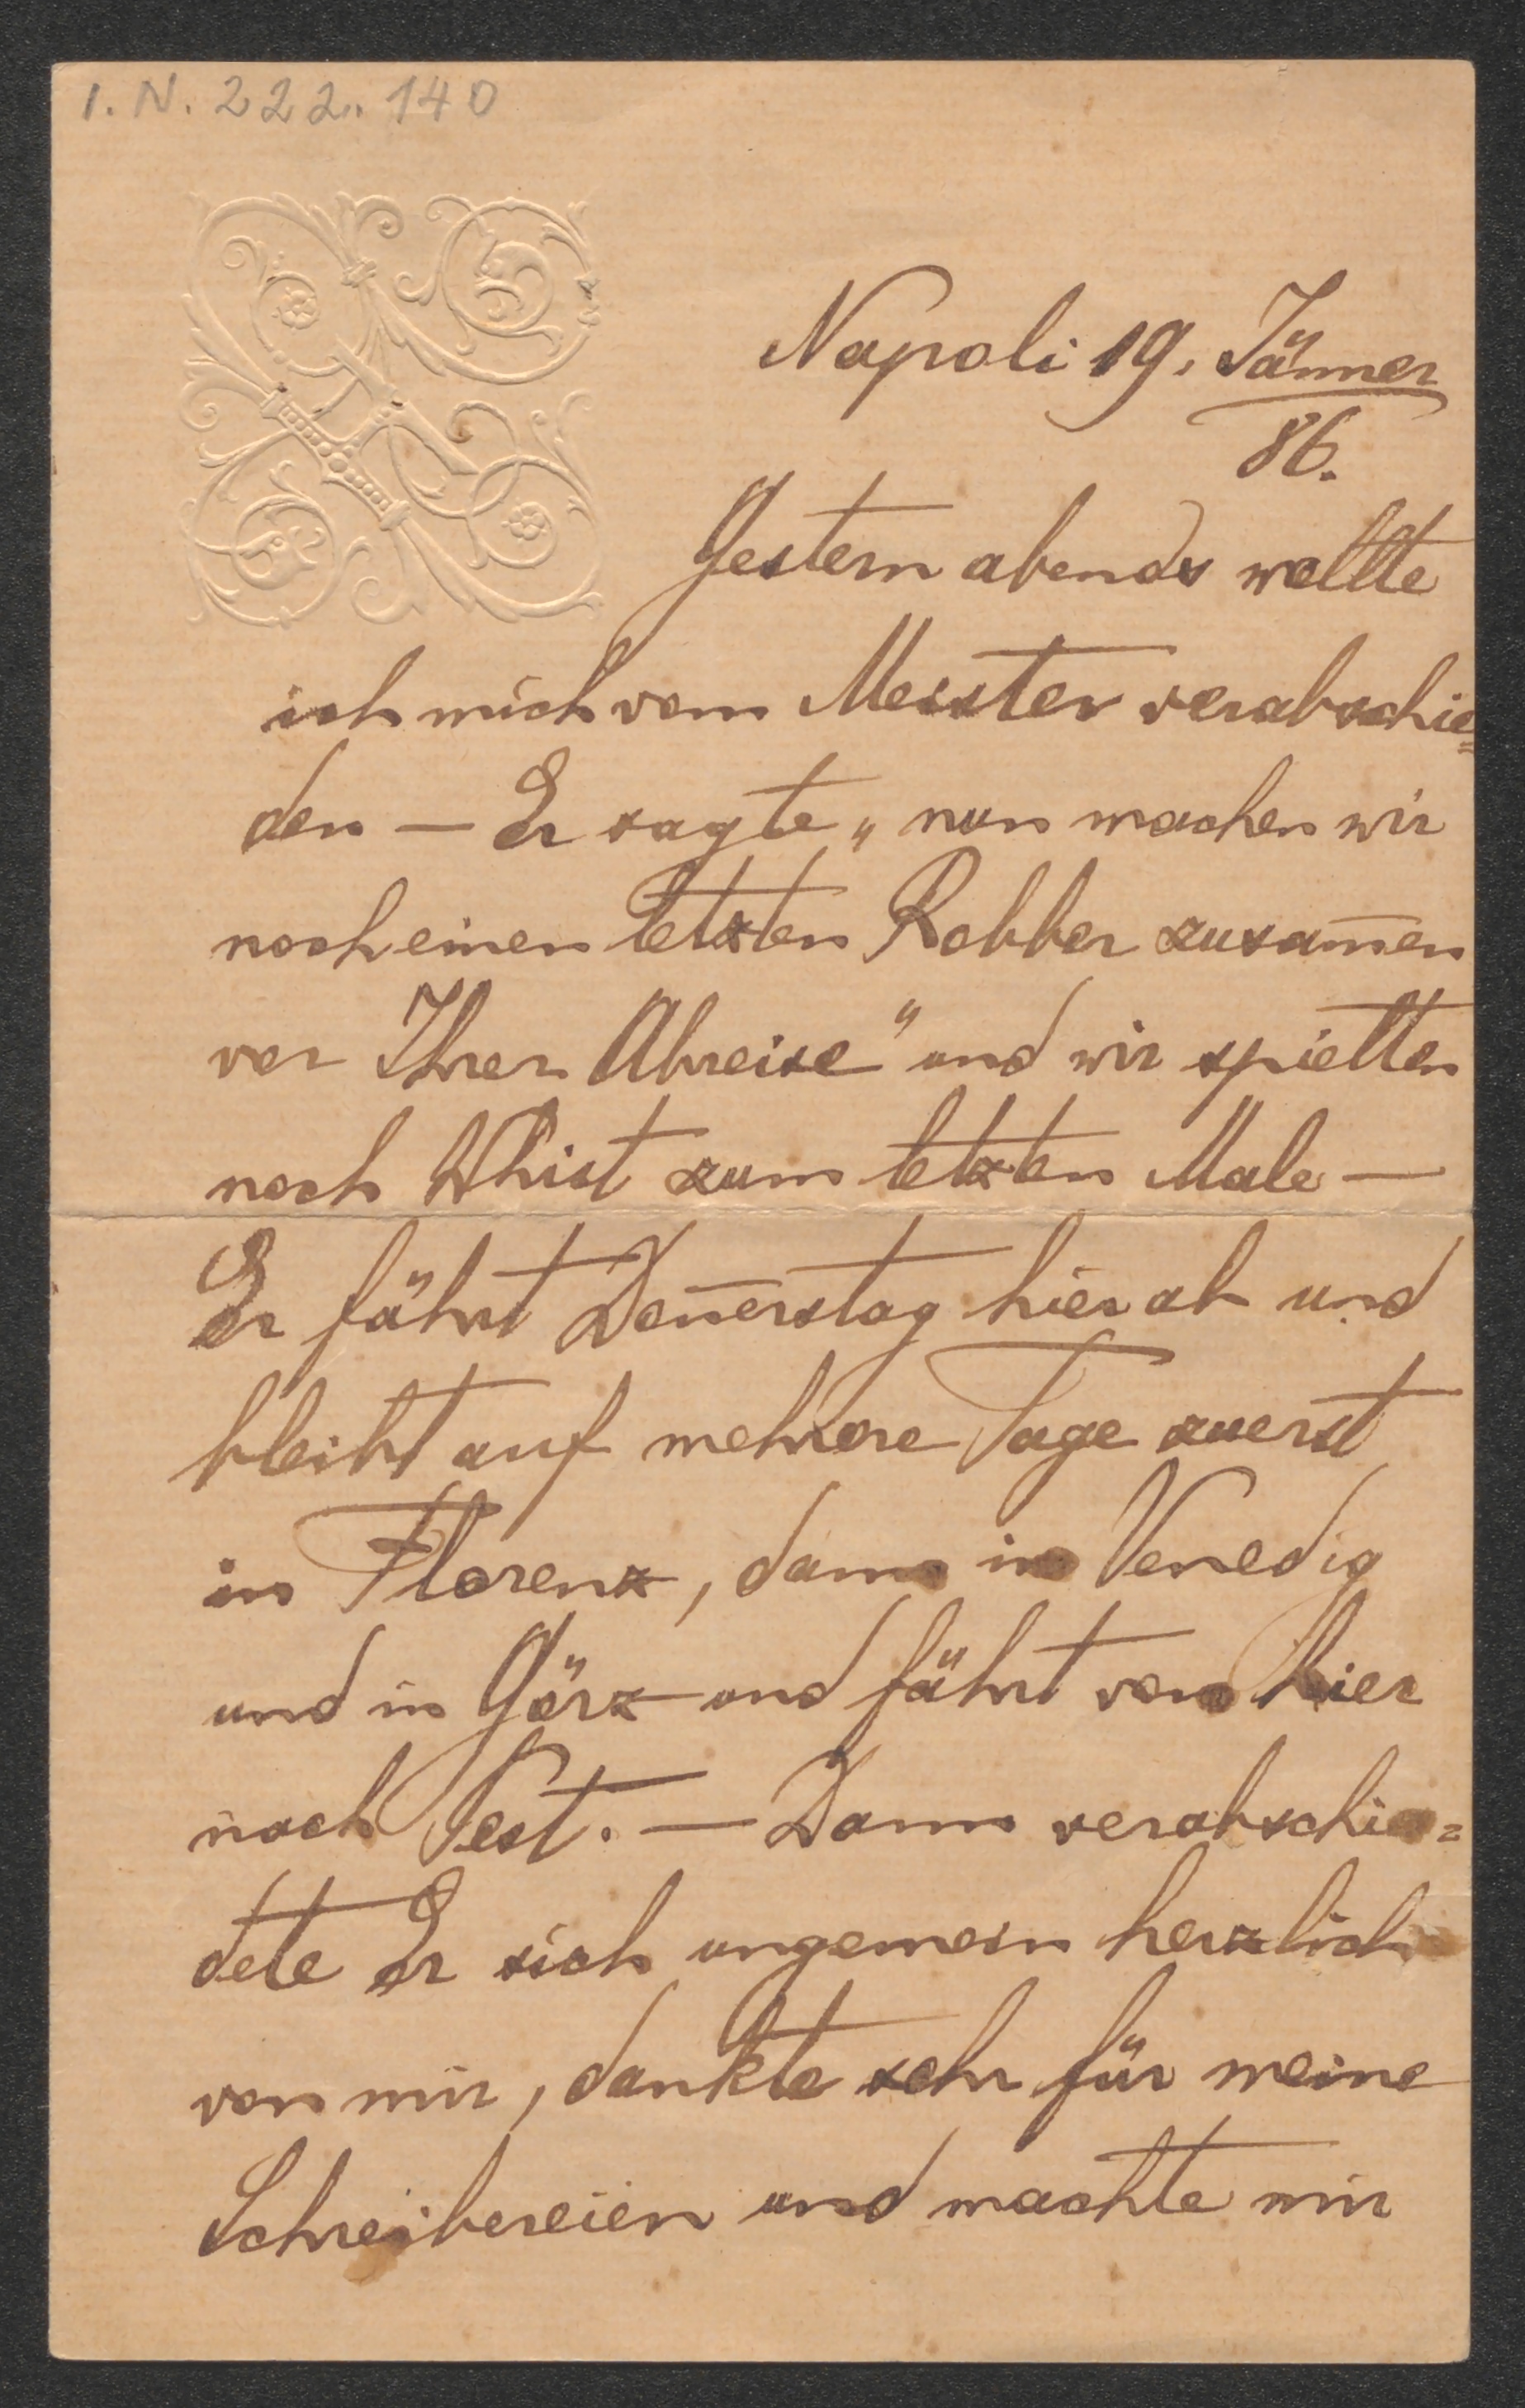 I.N. 222.140
Napoli 19. Jänner
86.
Gestern abends wollte
ich mich vom Meister verabschie=
den — Er sagte „nun machen wir
noch einen letzten Robber zusam̅en
vor Ihrer Abreise" und wir spielten
noch Whist zum letzten Male —
Er fährt Don̅erstag hier ab und
bleibt auf mehrere Tage zuerst
in Florenz, dann in Venedig
und in Görz und fährt von hier
nach Pest. — Dann verabschie=
dete Er sich ungemein herzlich
von mir, dankte sehr für meine
Schreibereien und machte mir